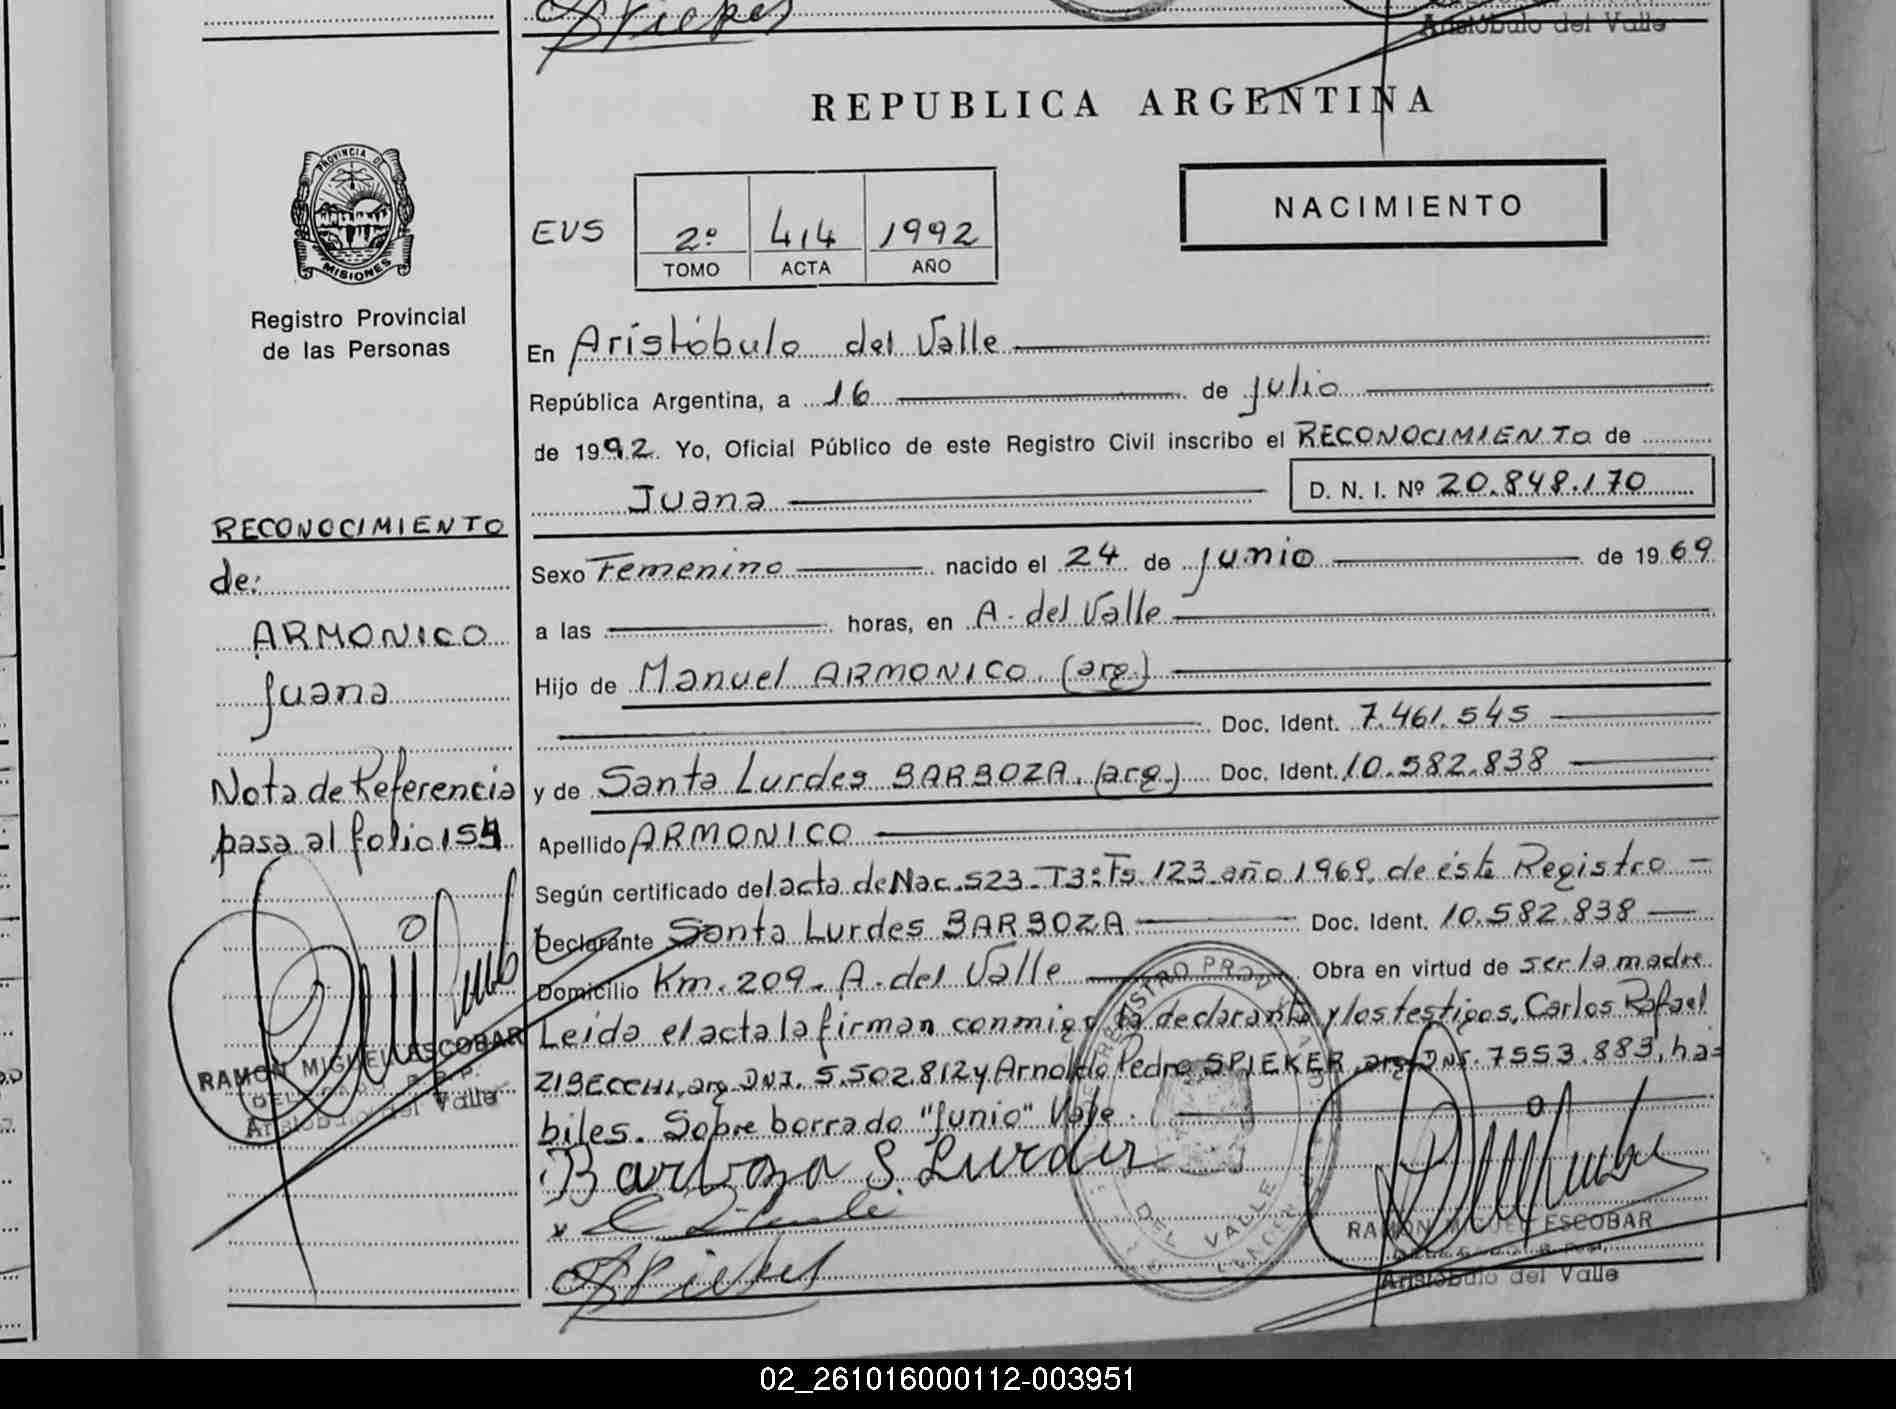 Spieker
Aristóbulo del Valle
REPUBLICA ARGENTINA
PROVINCIA DE
MISIONES
Registro Provincial
de las Personas
EVS
2º 414 1992
TOMO ACTA AÑO
NACIMIENTO
En Aristóbulo del Valle
República Argentina, a 16 de Julio
de 1992. Yo, Oficial Público de este Registro Civil inscribo el RECONOCIMIENTO de
Juana D. N. I. Nº 20.848.170
Sexo Femenino nacido el 24 de Junio de 1969
a las horas, en A. del Valle
Hijo de Manuel ARMONICO. (arg.)
Doc. Ident. 7.461.545
y de Santa Lurdes BARBOZA. (arg.) Doc. Ident. 10.582.838
Apellido ARMONICO
Según certificado del acta de Nac. 523. T3: Fs. 123. año 1969. de éste Registro
Declarante Santa Lurdes BARBOZA Doc. Ident. 10.582.838
Domicilio Km. 209. A. del Valle Obra en virtud de ser la madre
Leída el acta la firman conmigo la declarante y los testigos, Carlos Rafael
ZIBECCHI, arg. DNI. 5.502.812 y Arnoldo Pedro SPIEKER, arg. DNI. 7553.883, ha=
biles. Sobre borrado "Junio" Vale.
Barboza S. Lurdes
x
Spieker
RECONOCIMIENTO
de:
ARMONICO
Juana
Nota de Referencia
pasa al folio 154
RAMON MIGUEL ESCOBAR
Aristóbulo del Valle
REGISTRO PROV
DEL VALLE
RAMON MIGUEL ESCOBAR
Aristóbulo del Valle
02_261016000112-003951